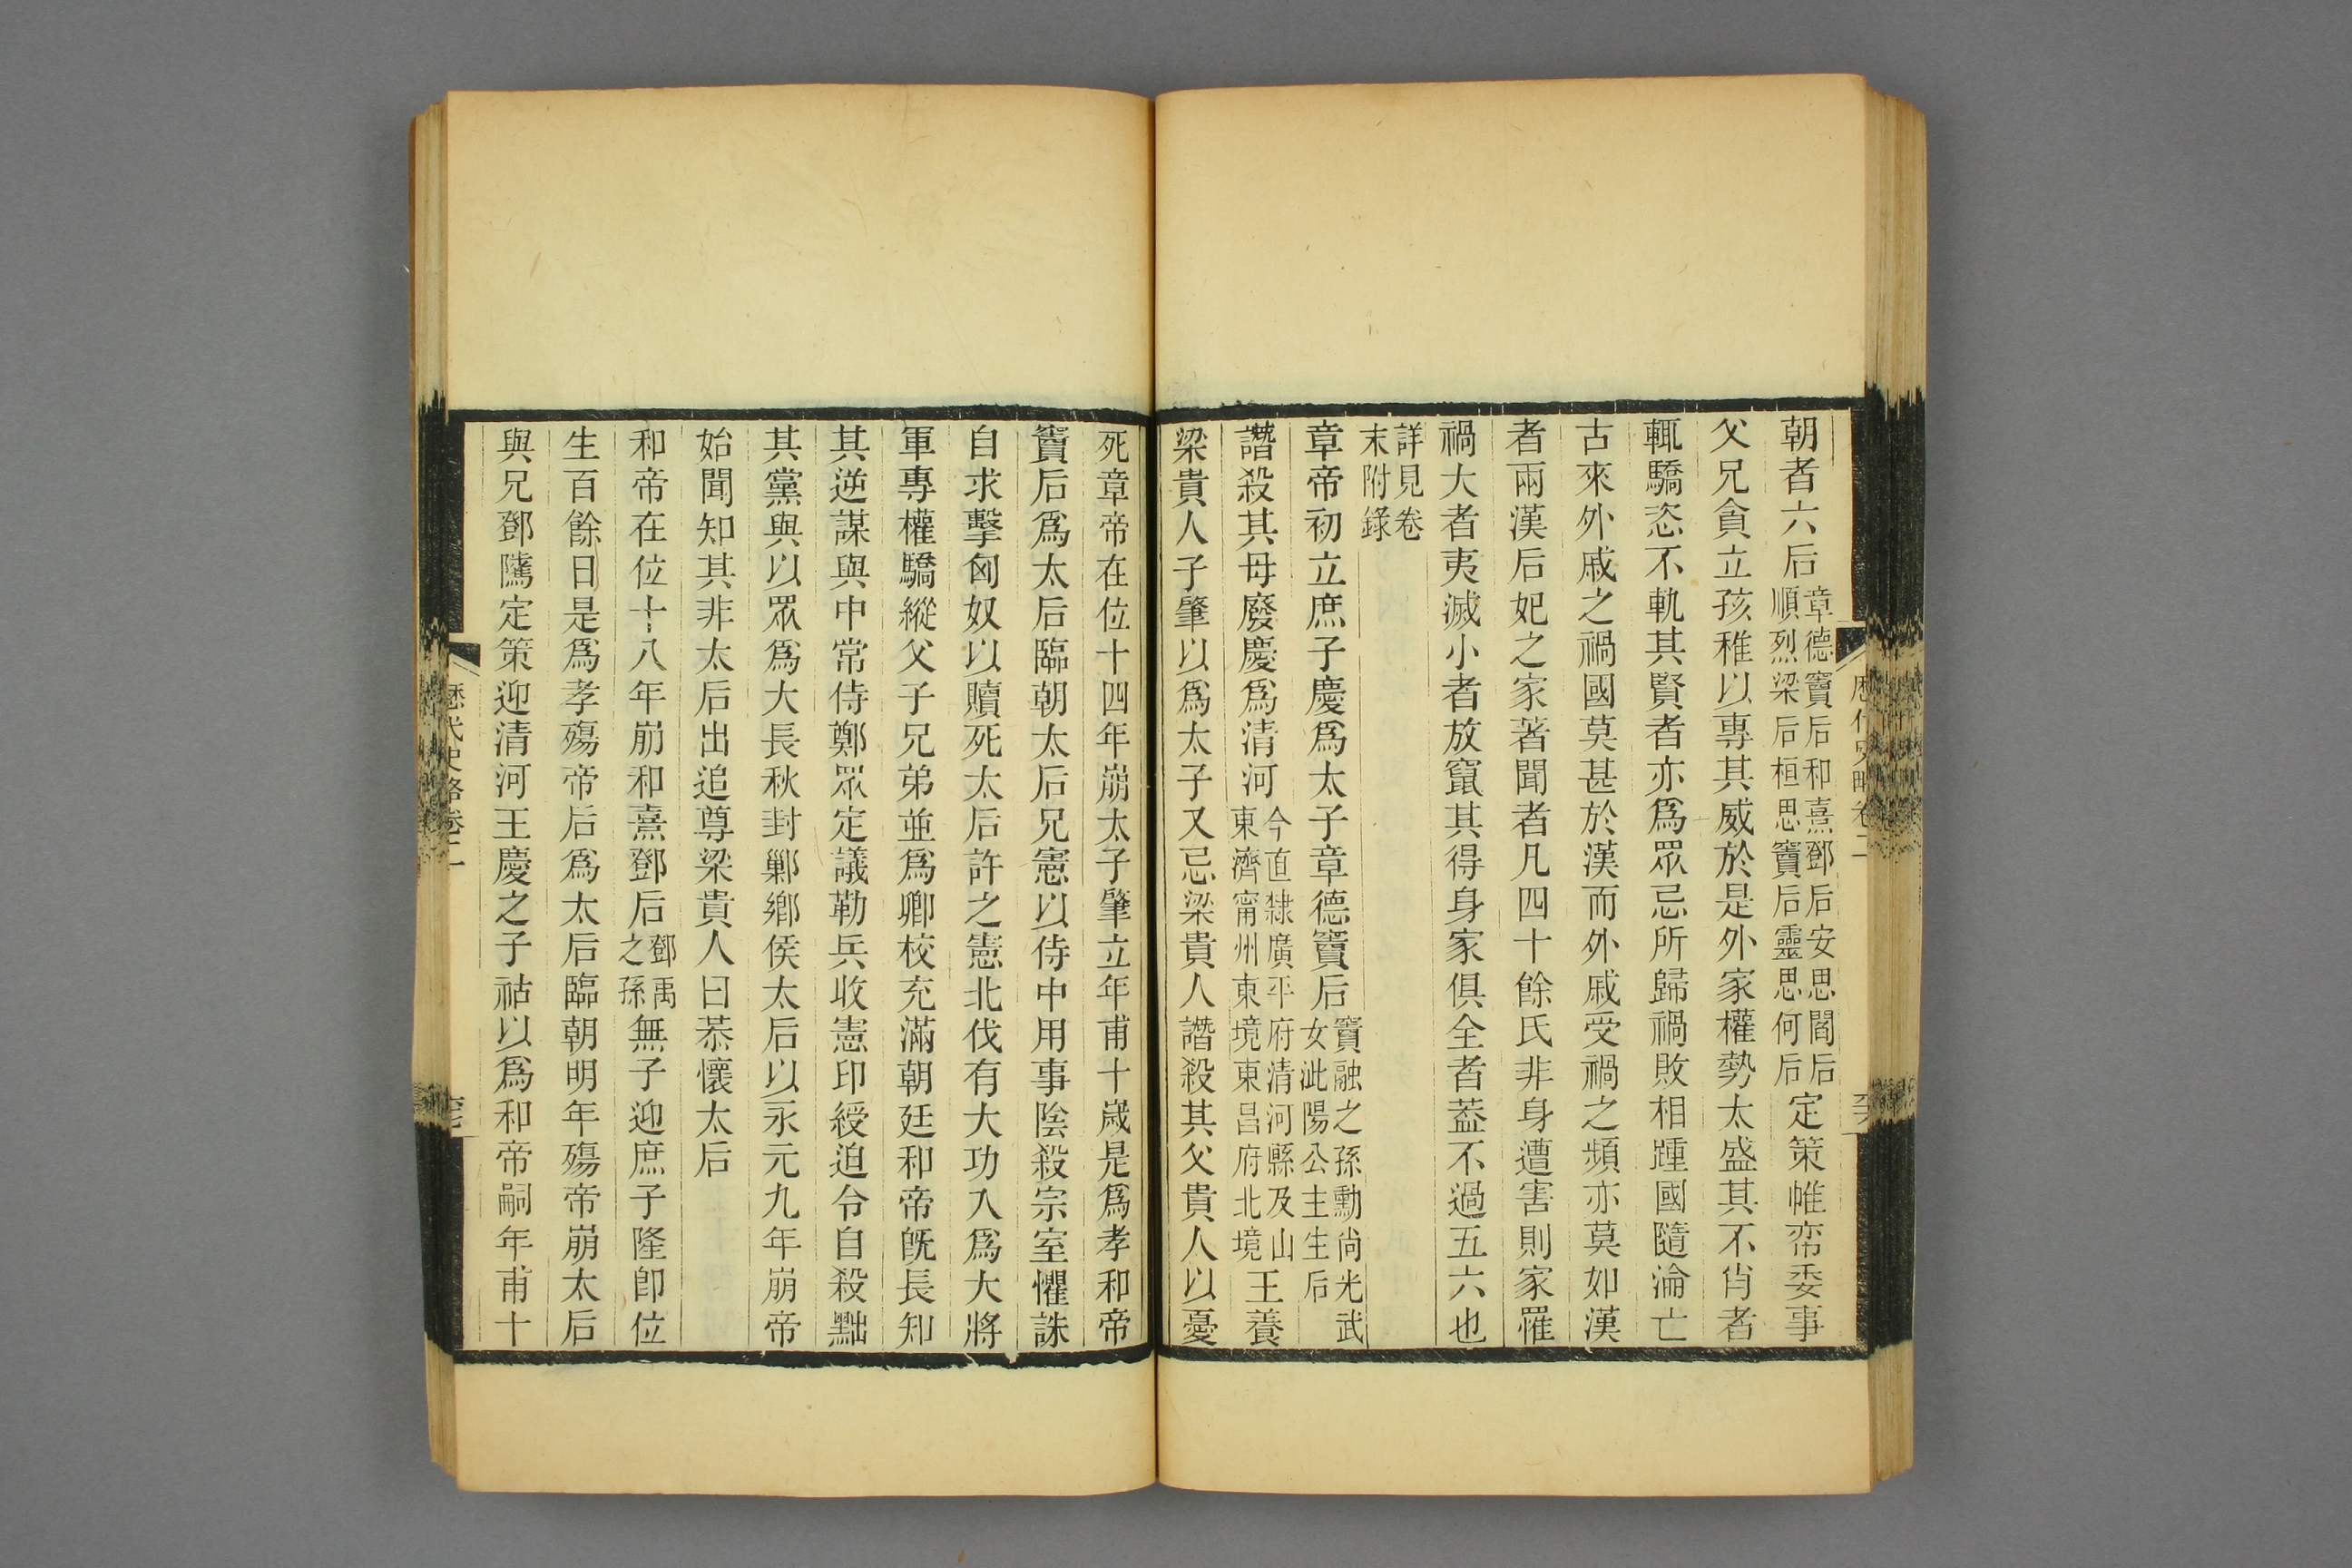 朝者六后章德竇后和熹鄧后安思閻后順烈梁后桓思竇后靈思何后定策帷帟委事
父兄貪立孩稚以專其威於是外家權勢太盛其不肖者
輒驕恣不軌其賢者亦爲眾忌所歸禍敗相踵國隨淪亡
古來外戚之禍國莫甚於漢而外戚受禍之頻亦莫如漢
者兩漢后妃之家著聞者凡四十餘氏非身遭害則家罹
禍大者夷滅小者放竄其得身家俱全者葢不過五六也
詳見卷末附錄
章帝初立庶子慶爲太子章德竇后竇融之孫勳尚光武女沘陽公主生后
譖殺其母廢慶爲清河今直隸廣平府清河縣及山東濟甯州東境東昌府北境王養
梁貴人子肇以爲太子又忌梁貴人譖殺其父貴人以憂
歷代史略卷二
死章帝在位十四年崩太子肇立年甫十歲是爲孝和帝
竇后爲太后臨朝太后兄憲以侍中用事陰殺宗室懼誅
自求擊匈奴以贖死太后許之憲北伐有大功入爲大將
軍專權驕縱父子兄弟並爲卿校充滿朝廷和帝既長知
其逆謀與中常侍鄭眾定議勒兵收憲印綬迫令自殺黜
其黨與以眾爲大長秋封鄛鄉侯太后以永元九年崩帝
始聞知其非太后出追尊梁貴人曰恭懷太后
和帝在位十八年崩和熹鄧后鄧禹之孫無子迎庶子隆卽位
生百餘日是爲孝殤帝后爲太后臨朝明年殤帝崩太后
與兄鄧騭定策迎清河王慶之子祜以爲和帝嗣年甫十
歷代史略卷二